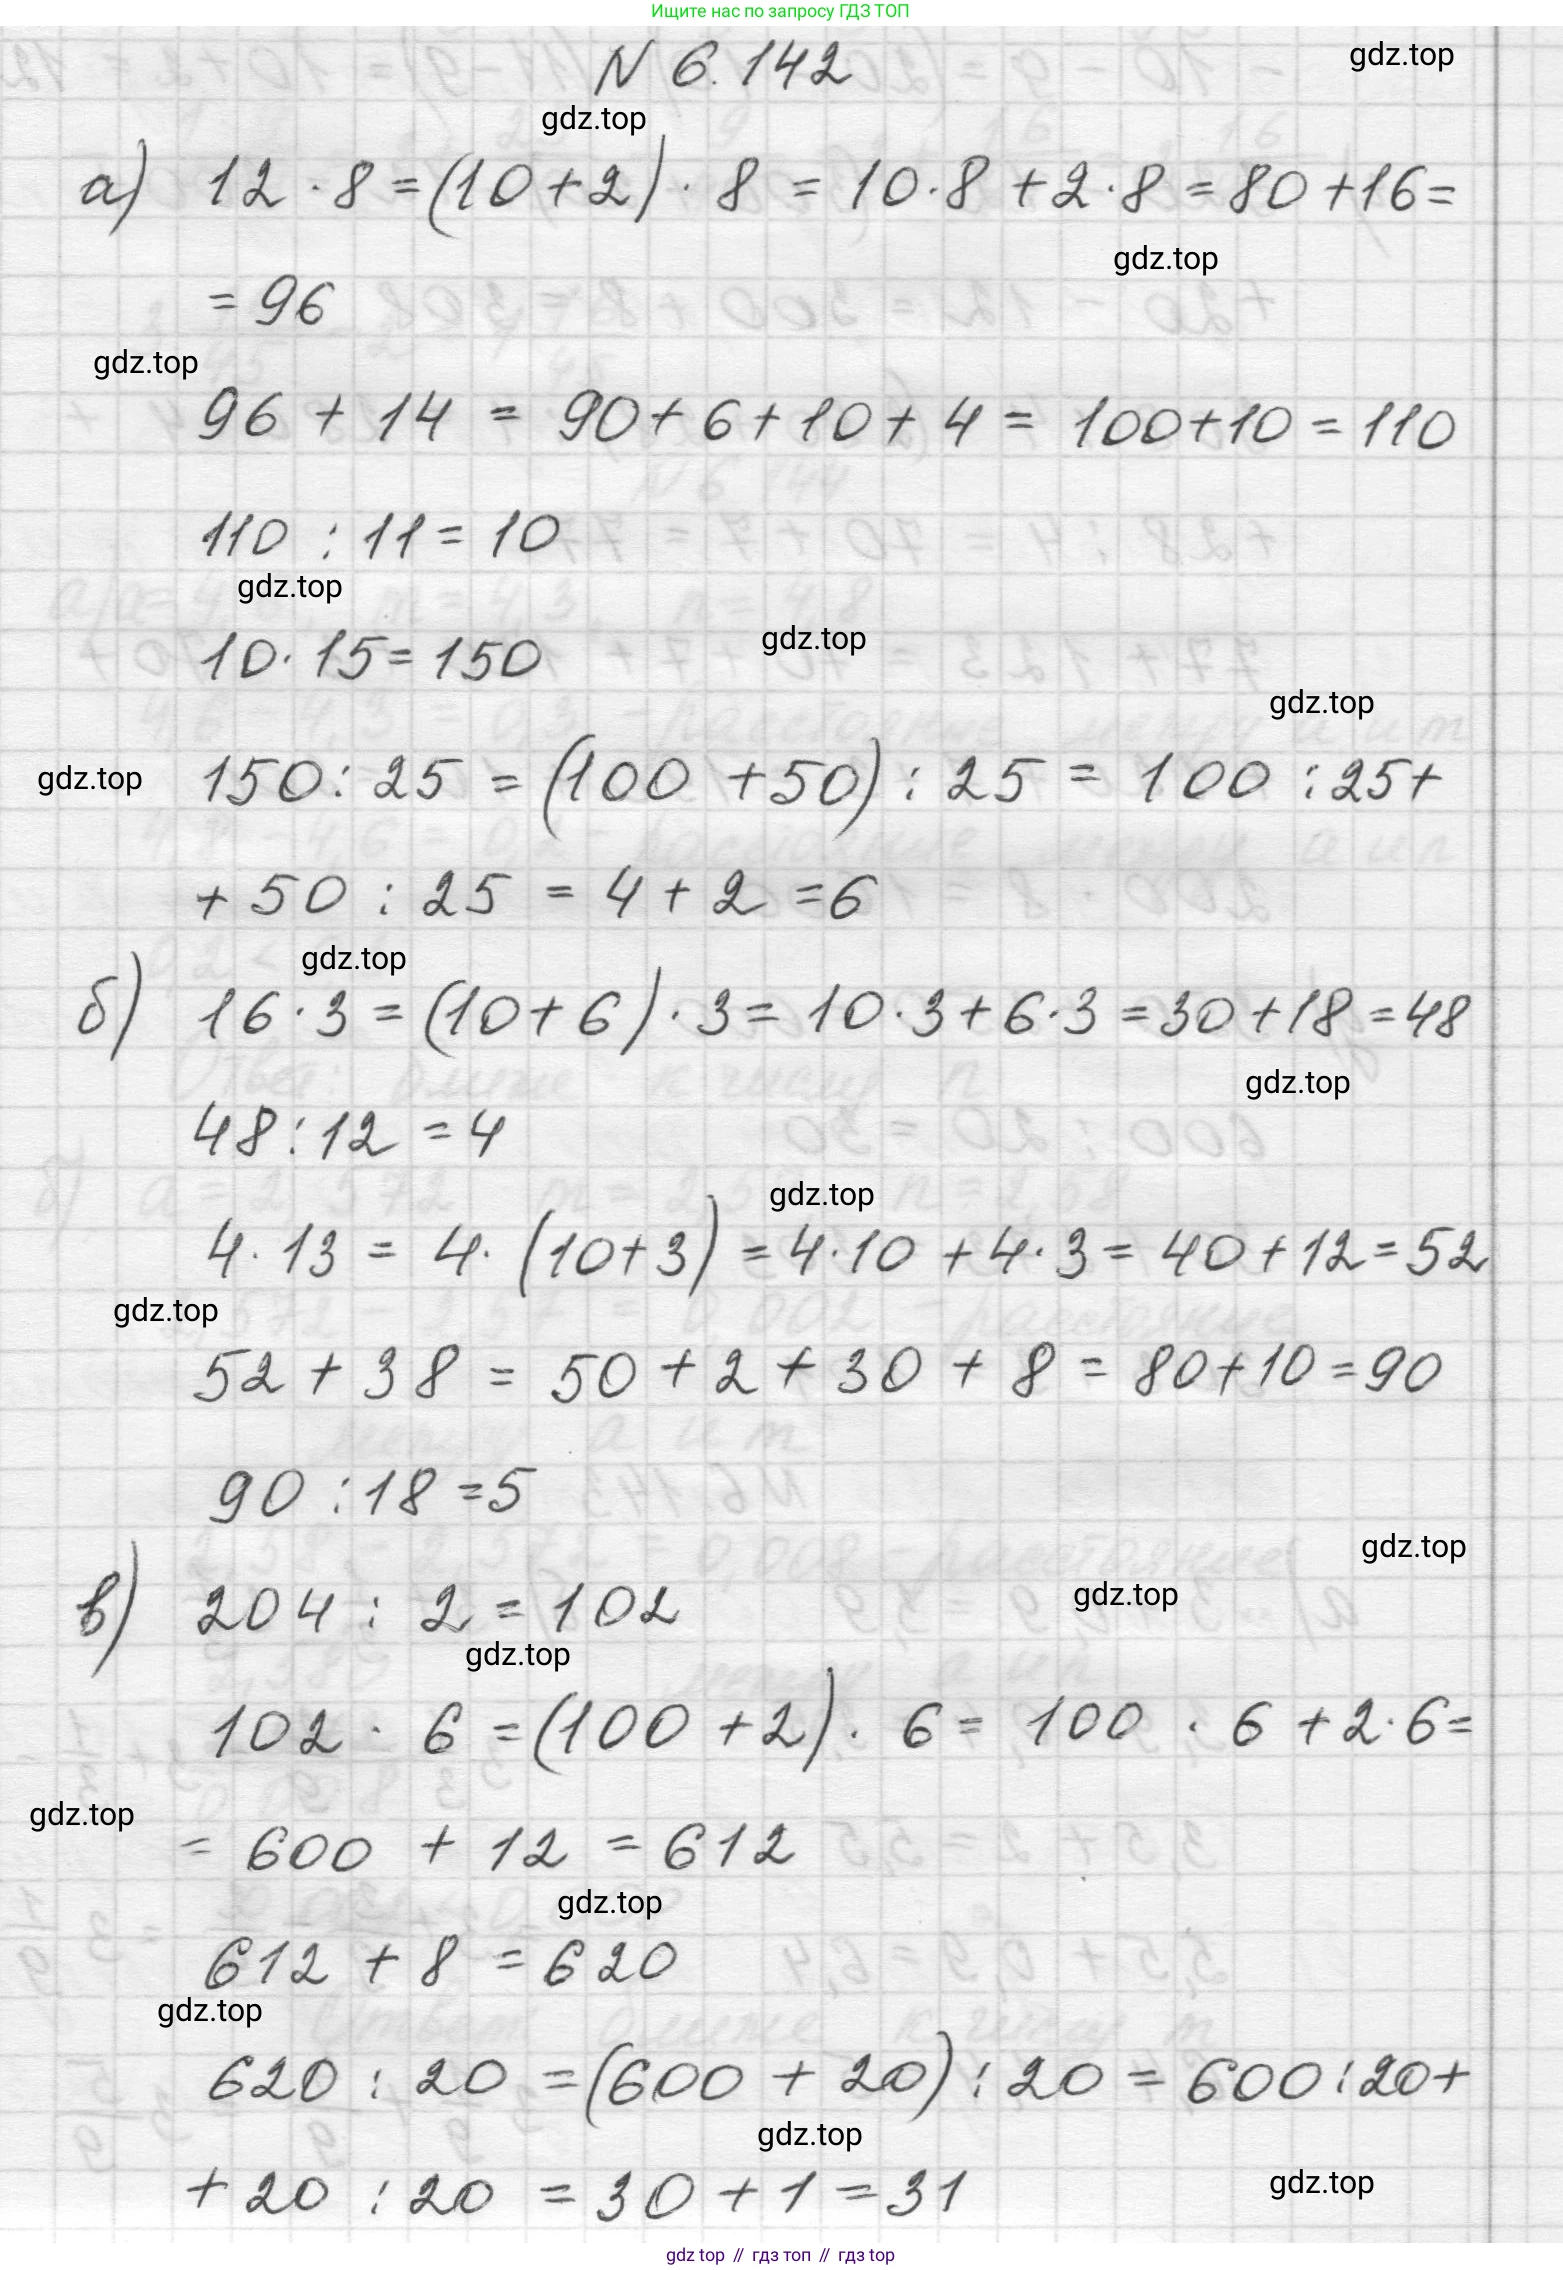 Ищите нас по запросу ГДЗ ТОП
N 6.142
gdz.top
gdz.top
а) 12 · 8 = (10 + 2) · 8 = 10 · 8 + 2 · 8 = 80 + 16 =
gdz.top
= 96
gdz.top
96 + 14 = 90 + 6 + 10 + 4 = 100 + 10 = 110
110 : 11 = 10
gdz.top
10 · 15 = 150
gdz.top
gdz.top
gdz.top
150 : 25 = (100 + 50) : 25 = 100 : 25 +
+ 50 : 25 = 4 + 2 = 6
gdz.top
б) 16 · 3 = (10 + 6) · 3 = 10 · 3 + 6 · 3 = 30 + 18 = 48
gdz.top
48 : 12 = 4
gdz.top
4 · 13 = 4 · (10 + 3) = 4 · 10 + 4 · 3 = 40 + 12 = 52
gdz.top
52 + 38 = 50 + 2 + 30 + 8 = 80 + 10 = 90
90 : 18 = 5
gdz.top
gdz.top
в) 204 : 2 = 102
gdz.top
102 · 6 = (100 + 2) · 6 = 100 · 6 + 2 · 6 =
gdz.top
= 600 + 12 = 612
gdz.top
612 + 8 = 620
gdz.top
620 : 20 = (600 + 20) : 20 = 600 : 20 +
gdz.top
+ 20 : 20 = 30 + 1 = 31
gdz.top
gdz top // гдз топ // гдз top